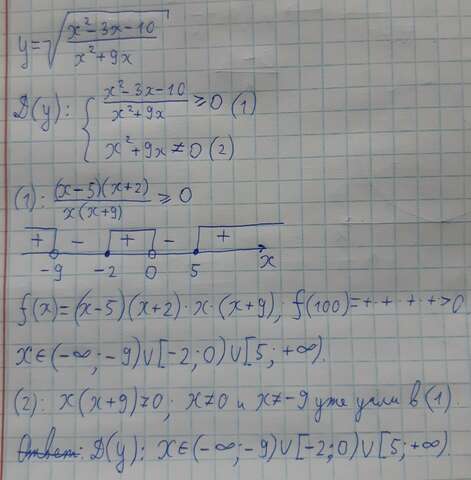 y=√((x²-3x-10)/(x²+9x))
D(y): { (x²-3x-10)/(x²+9x) ≥ 0 (1)
x²+9x≠0 (2)
(1): ((x-5)(x+2))/(x(x+9)) ≥ 0
+ - + - +
-9 -2 0 5 x
f(x)=(x-5)(x+2)·x·(x+9); f(100)=+·+·+·+>0
x∈(-∞;-9)∪[-2;0)∪[5;+∞).
(2): x(x+9)≠0; x≠0 и x≠-9 уже учли в (1).
Ответ: D(y): x∈(-∞;-9)∪[-2;0)∪[5;+∞).